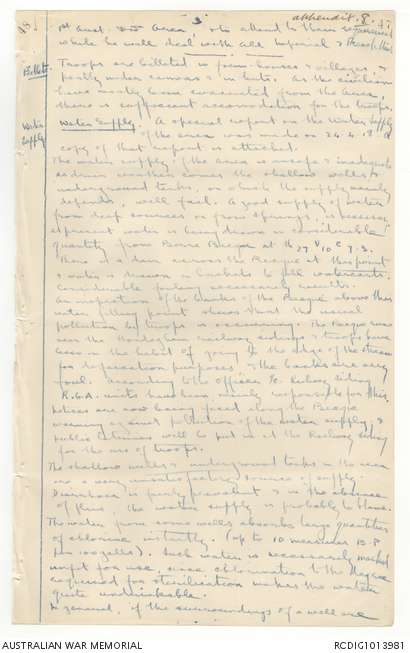 3
appendix. 8.
1st Aust. Area, & to attend to their
while he will deal with all Imperial &
Billets
Troops are billeted in farm-houses & villages &
partly under canvas & in huts. As the civilians
have mostly been evacuated from the area,
there is sufficient accomodation for the troops.
Water Supply
Water Supply. A special report on the Water Supply
of the area was made on 24.4.18 a
copy of that report is attached.
The water supply of the area is unsafe & inadequate
as when weather comes the shallow wells &
underground tanks, on which the supply mainly
depends, will fail. A good supply of water
from deep sources or from springs, is necessary
At present water is being drawn in considerable
quantity from Borre Becque at
There is a dam across the Becque at this point
& water is drawn in buckets to fill watercarts.
Considerable fouling necessarily results.
An inspection of the banks of the Becque above this
water filling point shows that the usual
pollution by troops is occurring. The Becque runs
near the Hondeghem railway siding & troops have
been in the habit of going to the edge of the stream
for defaecation purposes & the banks are very
foul. According to the Officer i/c Railway Siding
R.G.A. units have been mainly responsible for this.
Notices are now being fixed along the Becque
warning against pollution of the water supply, &
public latrines will be put up at the Railway siding
for the use of troops.
The shallow wells & underground tanks in the area
are a very unsatisfactory source of supply.
Diarrhoea is fairly prevalent & in the absence
of flies, the water supply is probably to blame.
The water from some wells absorbs large quantities
of chlorine instantly. (up to 10 measures B.P
per 100 galls). Such water is necessarily marked
unfit for use, since chlorination to the degree
required for sterilisation makes the water
quite undrinkable.
In general, if the surroundings of a well are
AUSTRALIAN WAR MEMORIAL
RCDIG1013981